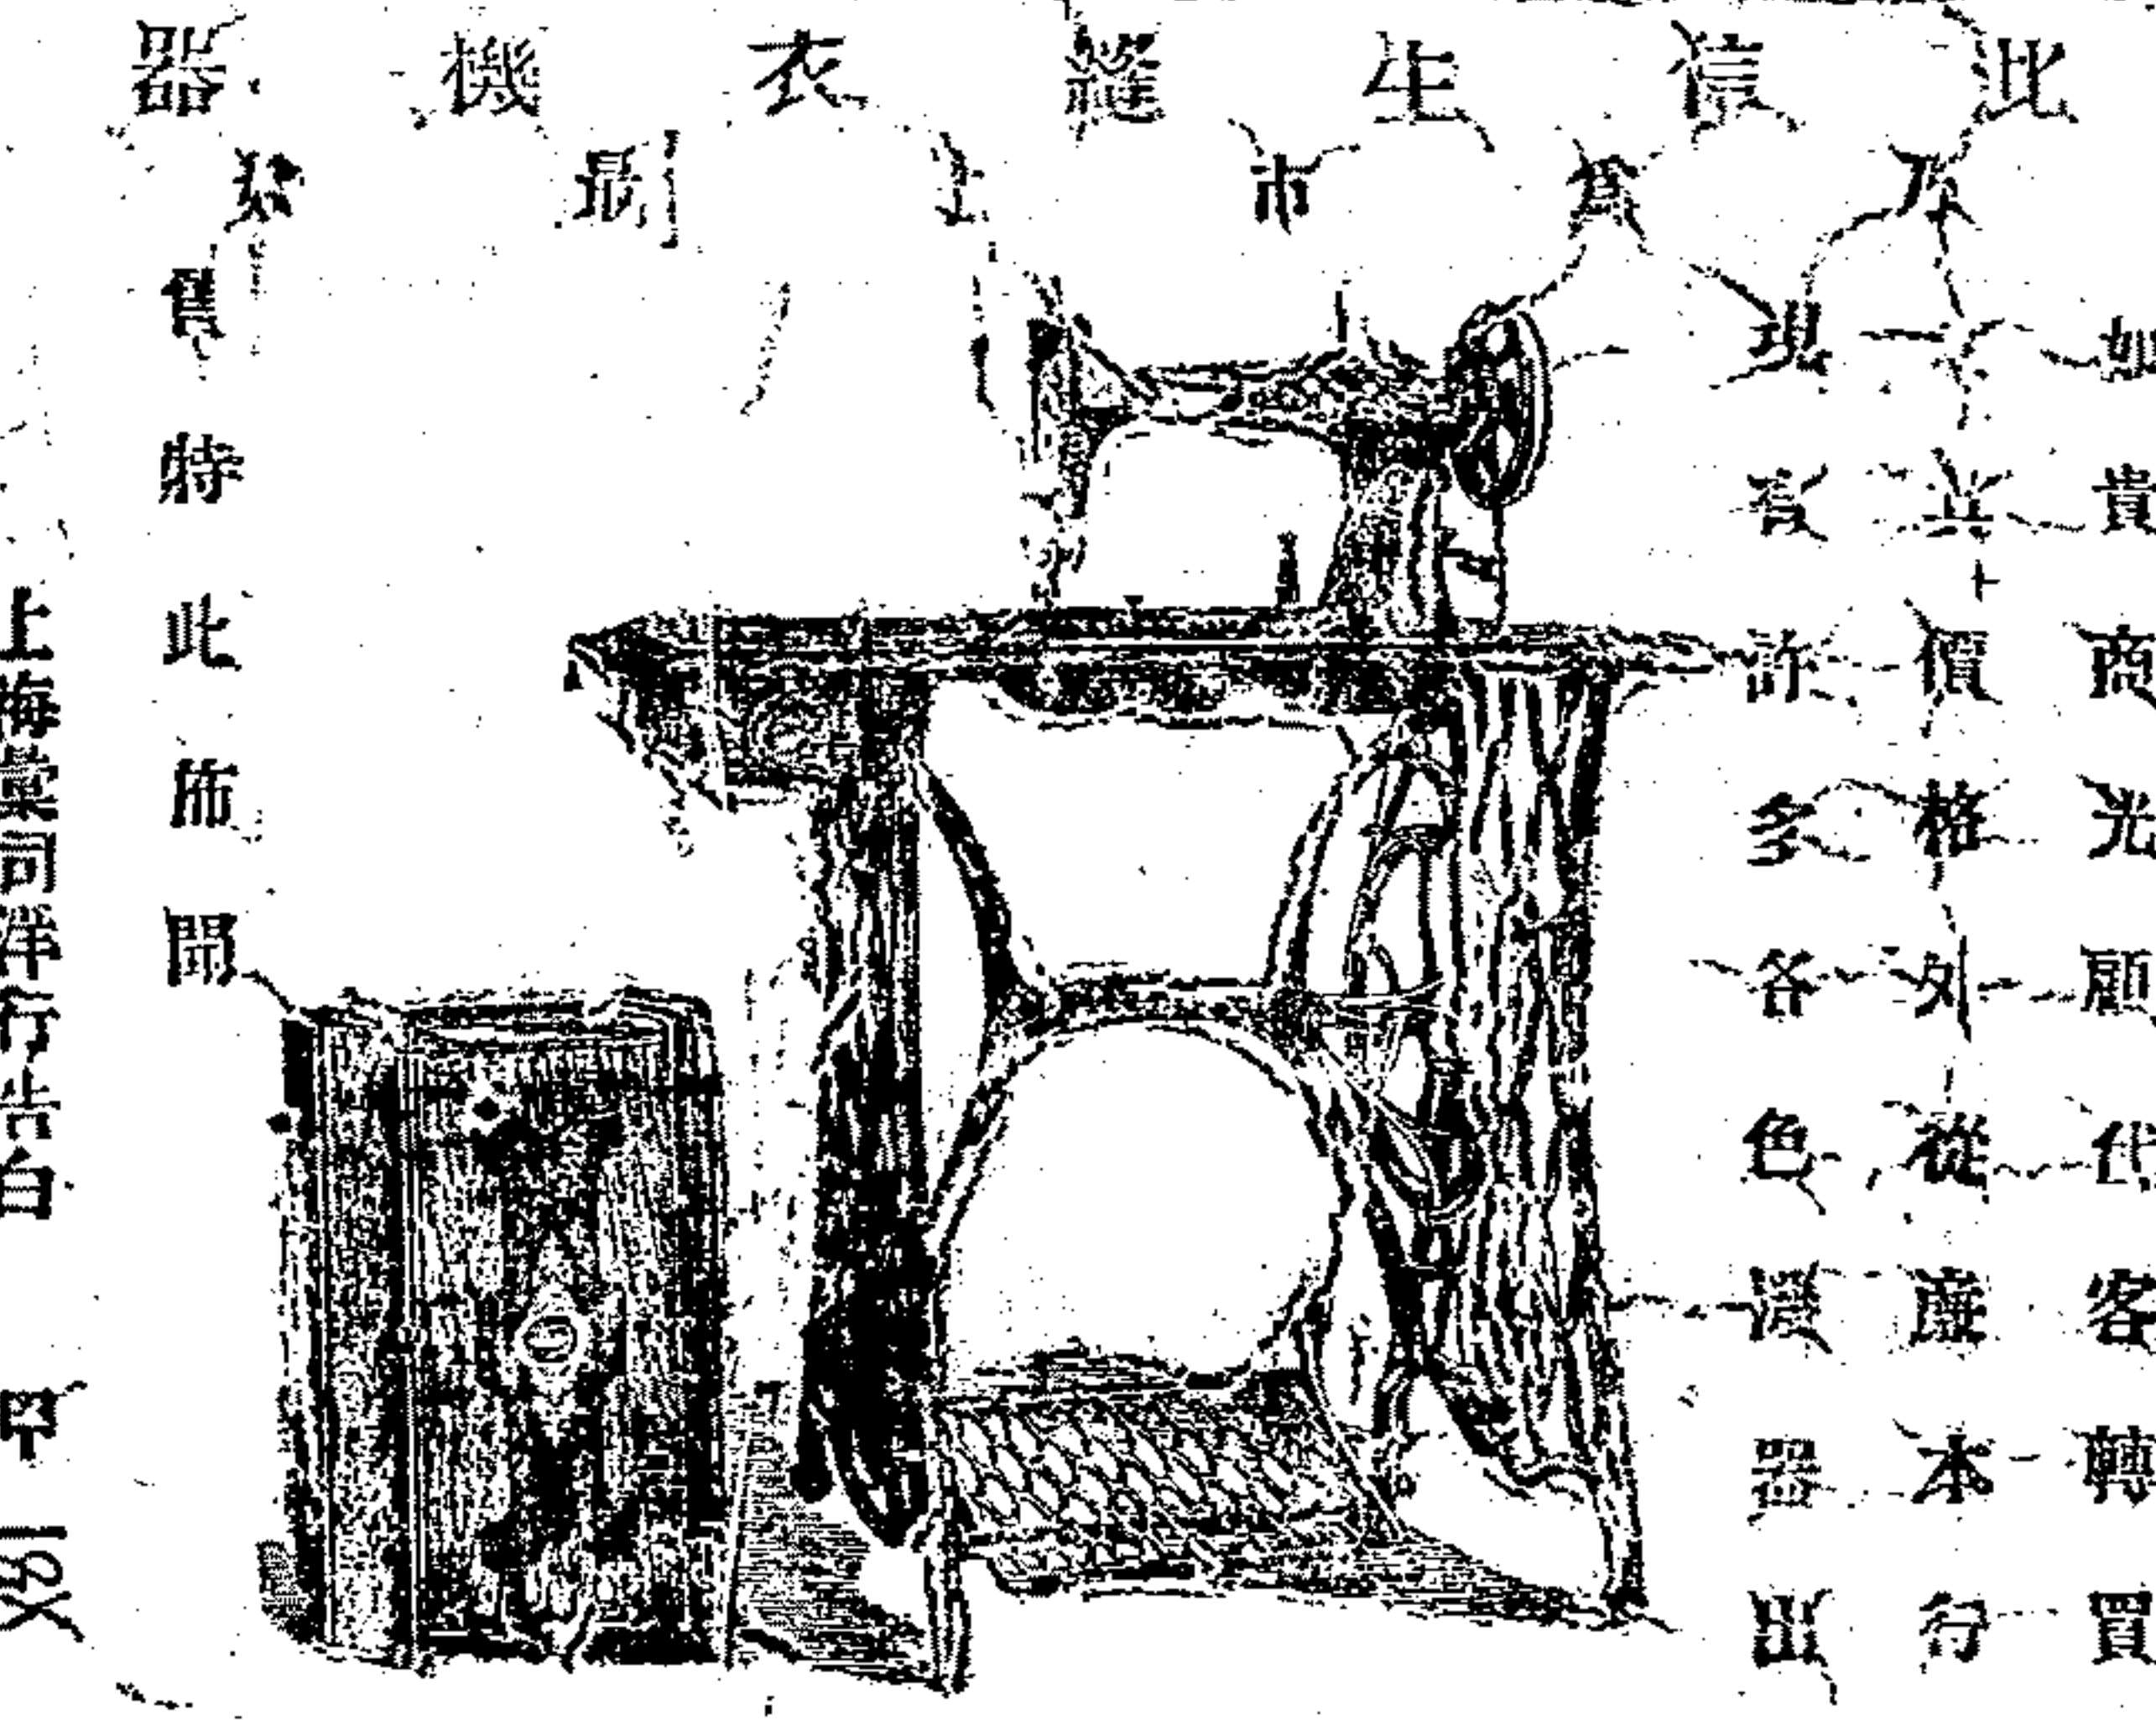 此信生縫衣機器
乃為市上最
如貴商光顧代客轉買
並價格外從廉本行
現有許多各色機器出
售特此佈聞
上海司洋行告白 甲